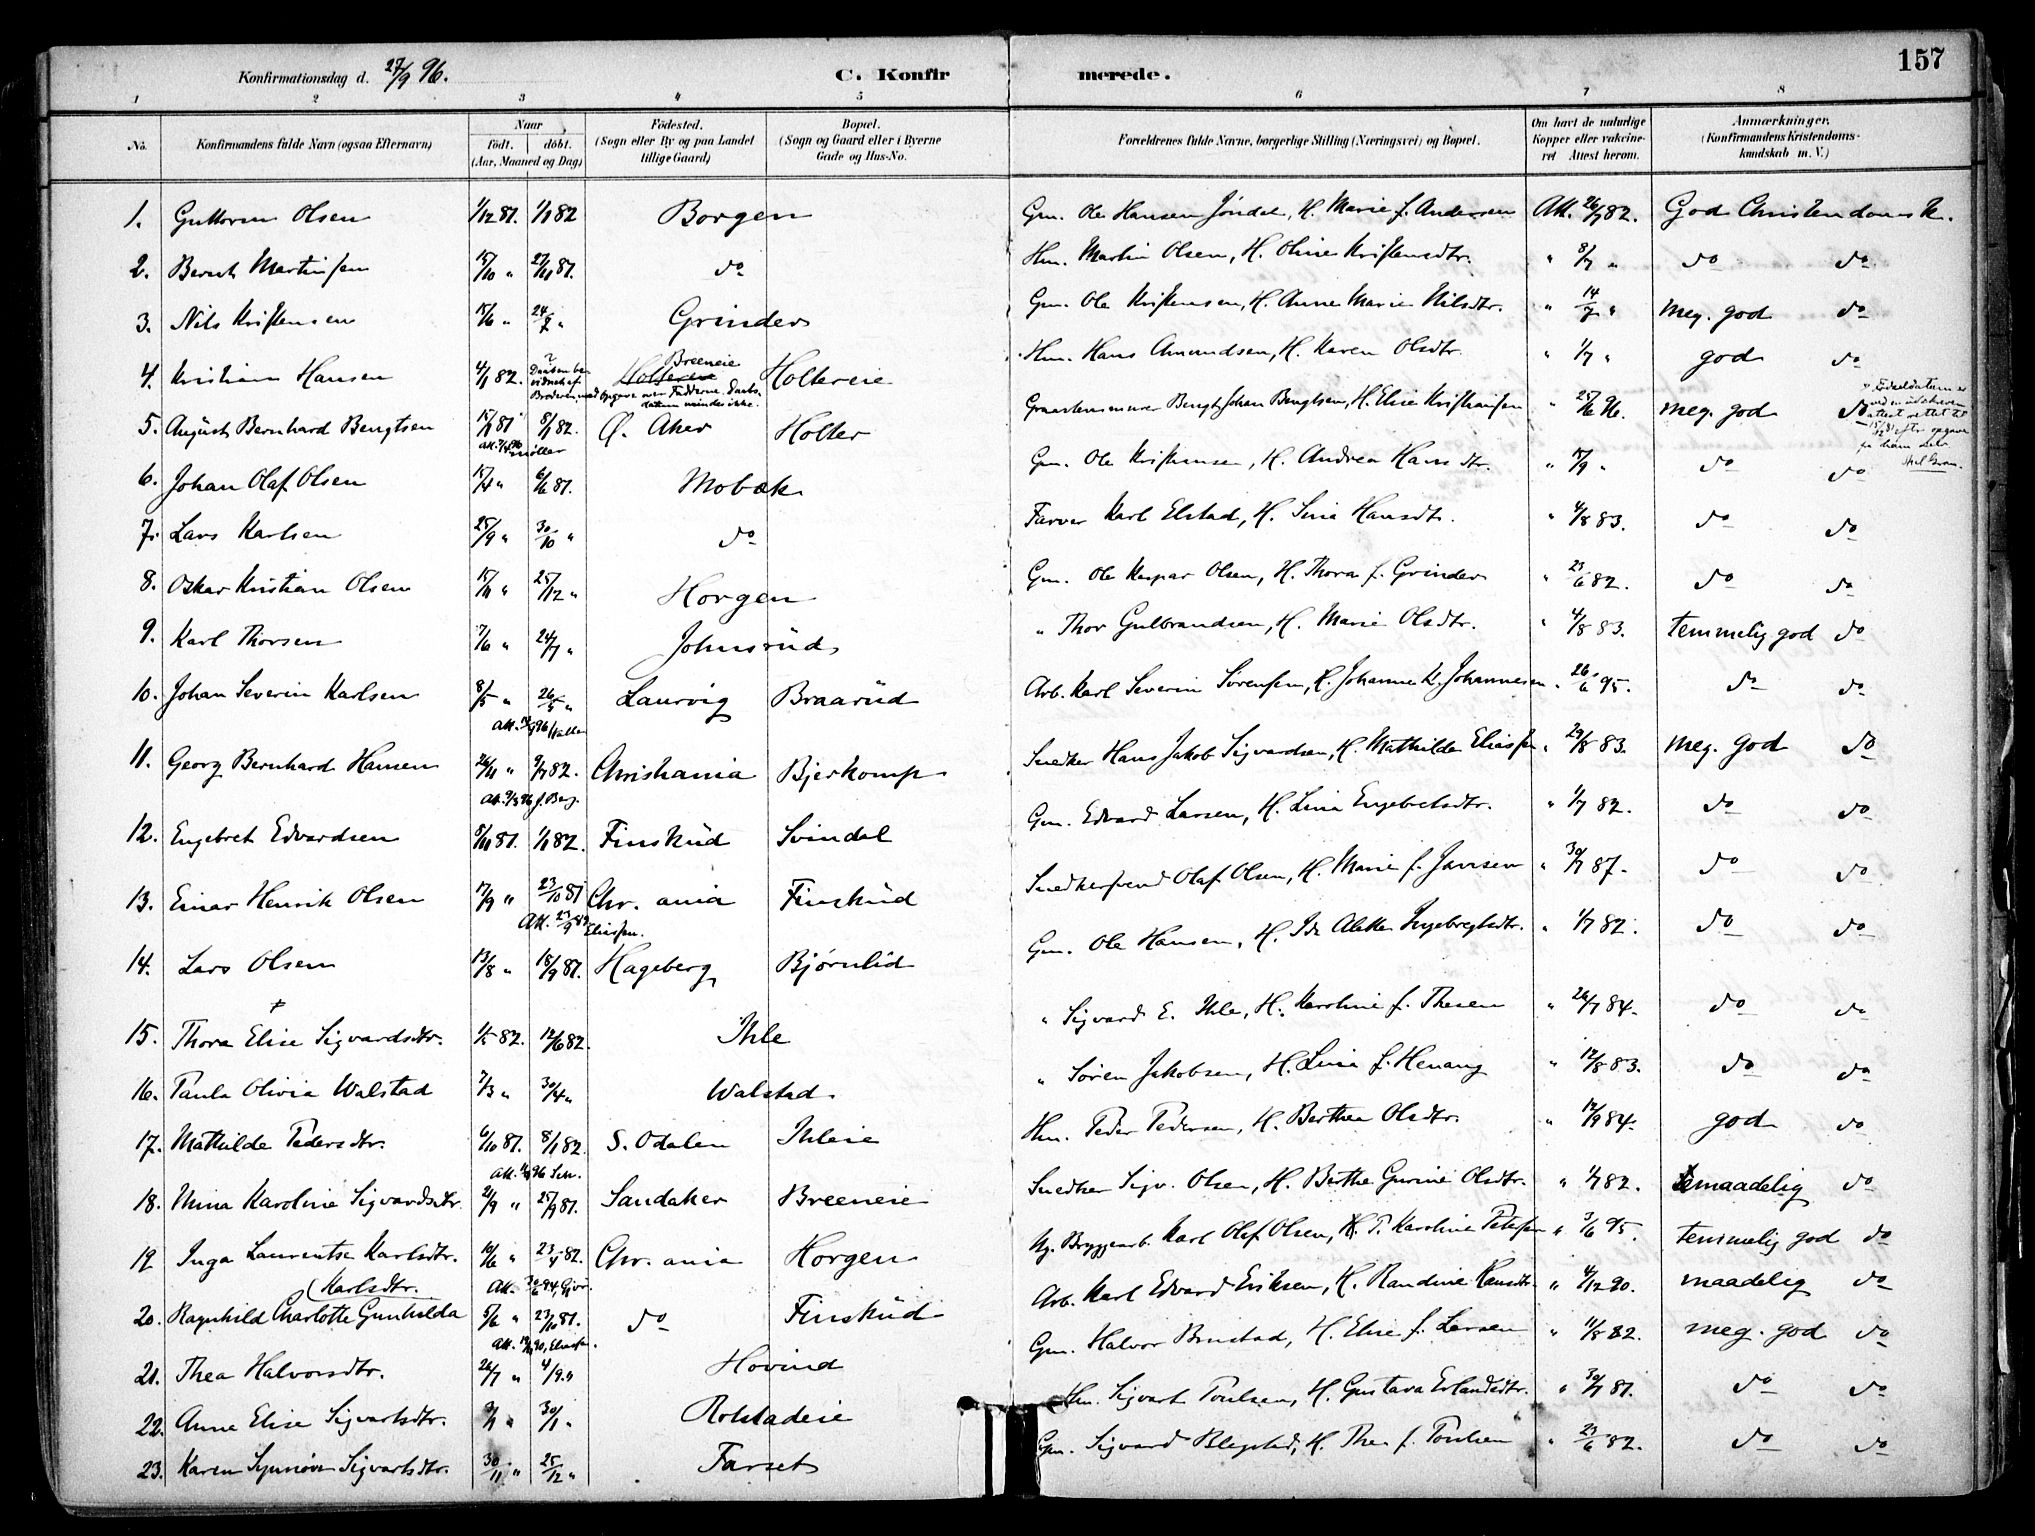 157
Konfirmationsdag d. 27/9 96. C. Konfirmerede.
1 2 3 4 5 6 7 8
No. Konfirmandens fulde Navn (ogsaa Efternavn) Naar født. døbt. (Aar, Maaned og Dag) Fødested. (Sogn eller By og paa Landet tillige Gaard) Bopæl. (Sogn og Gaard eller i Byerne Gade og Hus-No. Forældrenes fulde Navne, borgerlige Stilling (Næringsvei) og Bopæl. Om havt de naturlige Kopper eller vakcineret Attest herom. Anmærkninger. (Konfirmandens Kristendomskundskab m. V.)
1. Guttorm Olsen 1/12 81. 1/1 82 Borgen Gm. Ole Hansen Jøndal, H. Marie f. Andersen Att. 26/7 82. God Christendomsk.
2. Bernt Martinsen 15/10 " 27/11 81. do Hm. Martin Olsen, H. Oline Kristensdtr. " 8/7 " do do
3. Nils Kristensen 15/6 " 24/7 " Grinder Gm. Ole Kristensen, H. Anne Marie Nilsdtr. " 14/7 " meg. god do
4. Kristian Hansen 4/1 82. Daaben bevidnet af Broderen, med Opgave over Fadderne. Daabsdatum mindes ikke. Breeneie Holtereie Hm. Hans Amundsen, H. Karen Olsdtr. " 1/7 " god do
5. August Bernhard Bengtsen 8/1 82. Ø. Aker Holter Graastensmurer Bengt Johan Bengtsen, H. Elise Kristiansen " 25/6 96. meg. god do
6. Johan Olaf Olsen 15/4 " 6/6 81. Mobæk Gm. Ole Kristiansen, H. Andrea Hansdtr. " 15/9 " do do
7. Lars Karlsen 25/9 " 30/10 " do Farver Karl Elstad, H. Sina Hansdtr. " 4/8 83. do do
8. Oskar Kristian Olsen 15/11 " 25/12 " Horgen Gm. Ole Kaspar Olsen, H. Thora f. Grinder " 23/6 82. do do
9. Karl Thorsen 17/6 " 24/7 " Johnsrud " Thor Gulbrandsen, H. Marie Olsdtr. " 4/8 83. temmelig god do
10. Johan Severin Karlsen 8/5 " 26/5 " Laurvig Braarud Arb. Karl Severin Sørensen, H. Johanne K. Johannesen " 26/6 95. do do
11. Georg Bernhard Hansen 26/11 " 9/7 82. Christiania Bjerkomp Snedker Hans Jakob Sigvardsen, H. Mathilde Eliassen " 29/8 83. meg. god do
12. Engebret Edvardsen 8/11 81. 1/1 82. Finskud Svindal Gm. Edvard Larsen, H. Lina Engebretsdtr. " 1/7 82. do do
13. Einar Henrik Olsen 17/9 " 23/10 81 Chr. ania Finskud Snedkersvend Olaf Olsen, H. Marie f. Jansen " 30/7 87. do do
Att. 23/9 Eliassen.
14. Lars Olsen 13/8 " 18/9 81. Hageberg Bjørnlid Gm. Ole Hansen, H. Ida Alette Ingebregtsdtr. " 1/7 82. do do
15. Thora Elise Sigvardsdtr. 1/5 82. 12/6 82. Ihle " Sigvard E. Ihle, H. Karoline f. Thesen " 26/7 84. do do
16. Paula Olivia Walstad 7/3 " 30/4 " Walstad. " Søren Jakobsen, H. Lina f. Henang " 12/8 83. do do
17. Mathilde Pedersdtr. 6/10 81. 8/1 82. S. Odalen Ihleie Hm. Peder Pedersen, H. Berthea Olsdtr. " 12/9 84. god do
18. Mina Karoline Sigvardsdtr. 2/9 " 25/9 81. Sandaker Breeneie Snedker Sigv. Olsen, H. Berthe Gurine Olsdtr. " 1/7 82. maadelig do
19 Inga Laurentse Karlsdtr. 10/6 " 23/4 82. Chr. ania Horgen Bryggearb. Karl Olaf Olsen, H. P. Karoline Petersen " 3/6 95. temmelig god do
20. Ragnhild Charlotte Gunhilda (Karlsdtr. 5/6 " 23/10 81. do Finskud Arb. Karl Edvard Eriksen, H. Randine Hansdtr. " 4/12 90. maadelig do
21. Thea Halvorsdtr. 26/7 " 4/9 " Hovind Gm. Halvor Brustad, H. Elise f. Larsen " 11/8 82. meg. god do
22. Anne Elise Sigvartsdtr. 30/1 " Rolstadeie Hm. Sigvart Poulsen, H. Gustava Erlandsdtr. " 30/7 81. do do
23. Karen Synnøve Sigvartsdtr. 30/11 " 25/12 " Farset Gm. Sigvard Blegstad, H. Thea f. Poulsen " 23/6 82. do do